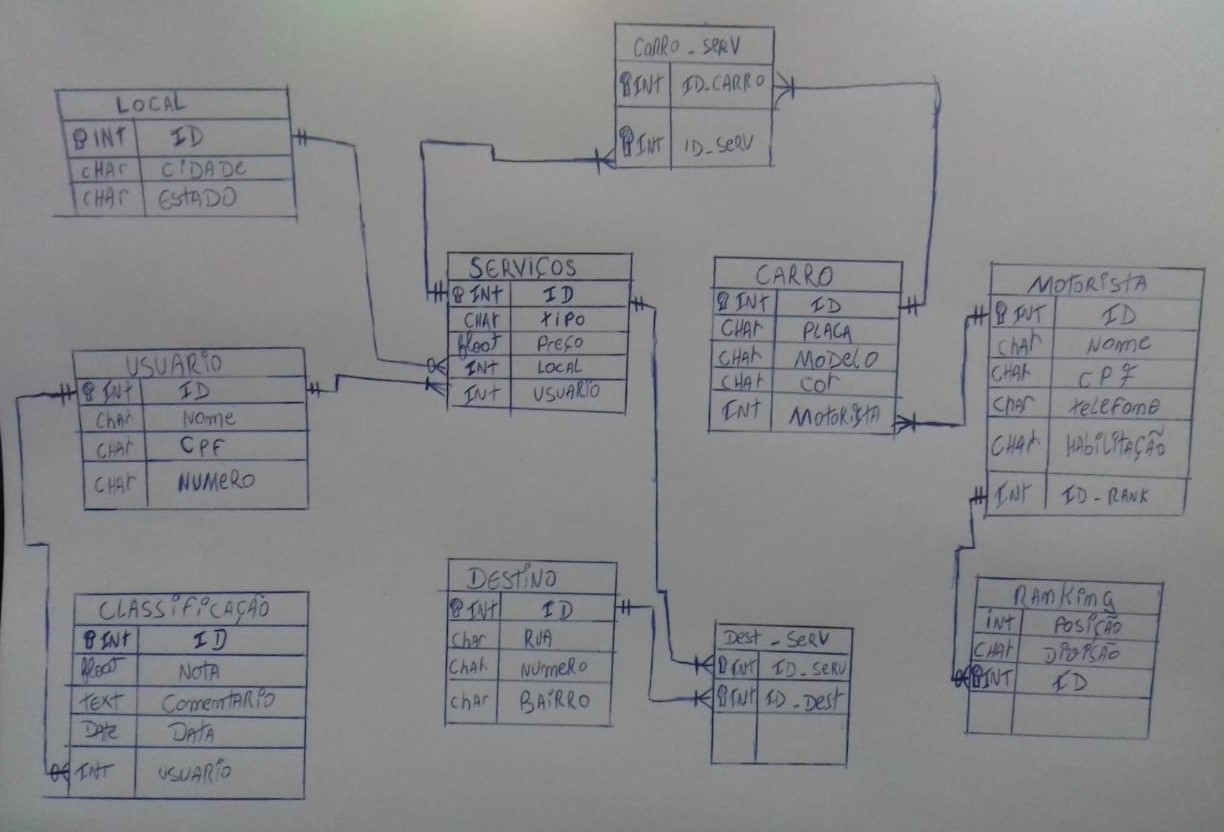 CARRO_SERV
INT ID_CARRO
INT ID_SERV
LOCAL
INT ID
CHAR CIDADE
CHAR ESTADO
SERVIÇOS
INT ID
CHAR TIPO
float Preço
INT LOCAL
INT USUARIO
CARRO
INT ID
CHAR PLACA
CHAR MODELO
CHAR COR
INT MOTORISTA
MOTORISTA
INT ID
CHAR NOME
CHAR CPF
CHAR telefone
CHAR HABILITAÇÃO
INT ID-RANK
USUARIO
INT ID
Char Nome
CHAR CPF
CHAR NUMERO
CLASSIFICAÇÃO
INT ID
float NOTA
TEXT ComenTARIO
DATE DATA
INT USUARIO
DESTINO
INT ID
Char RUA
CHAR NUMERO
char BAIRRO
Dest_SERV
INT ID_SERV
INT ID_Dest
RANKING
int POSIÇÃO
CHAR
INT ID